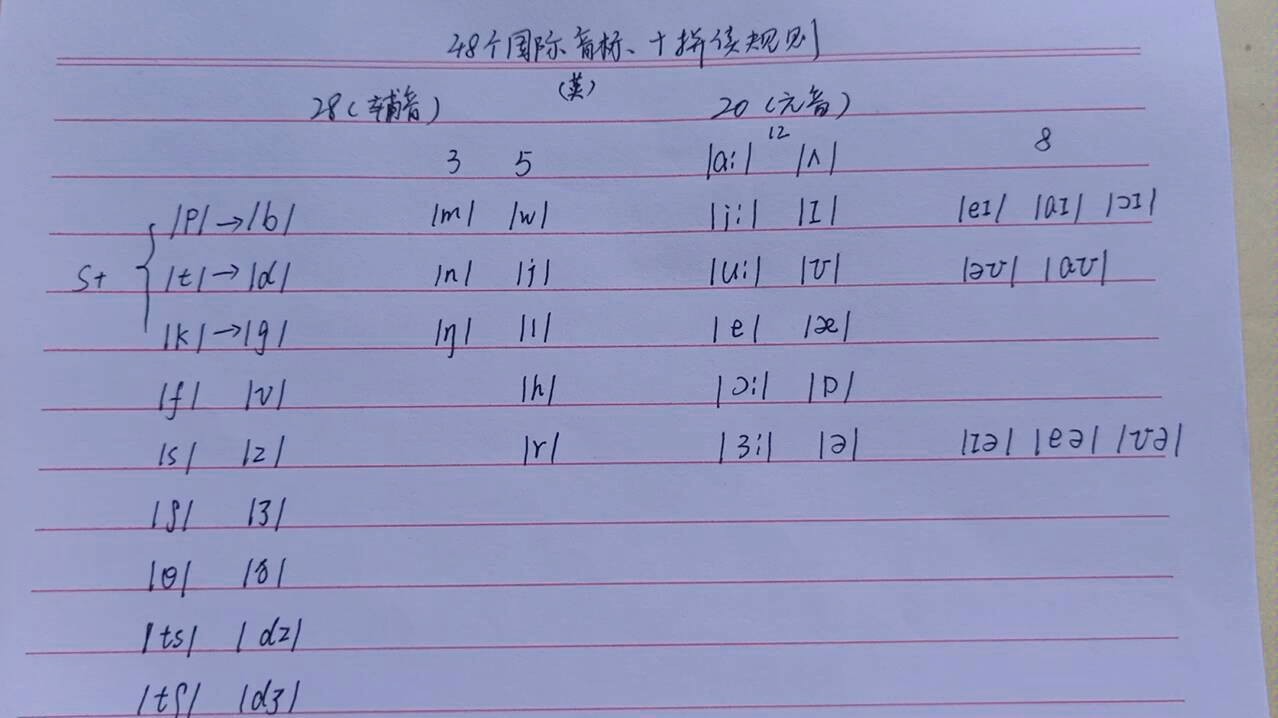 48个国际音标、十拼读规则
(英)
28(辅音) 20(元音)
3 5 12 8
|ɑː| |ʌ|
S+ |p|→|b| |m| |w| |iː| |ɪ| |eɪ| |aɪ| |ɔɪ|
|t|→|d| |n| |j| |uː| |ʊ| |əʊ| |aʊ|
|k|→|g| |ŋ| |l| |e| |æ|
|f| |v| |h| |ɔː| |ɒ|
|s| |z| |r| |ɜː| |ə| |ɪə| |eə| |ʊə|
|ʃ| |ʒ|
|θ| |ð|
|ts| |dz|
|tʃ| |dʒ|